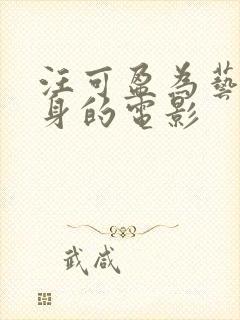 汪可盈為藝
身的電影
武咸